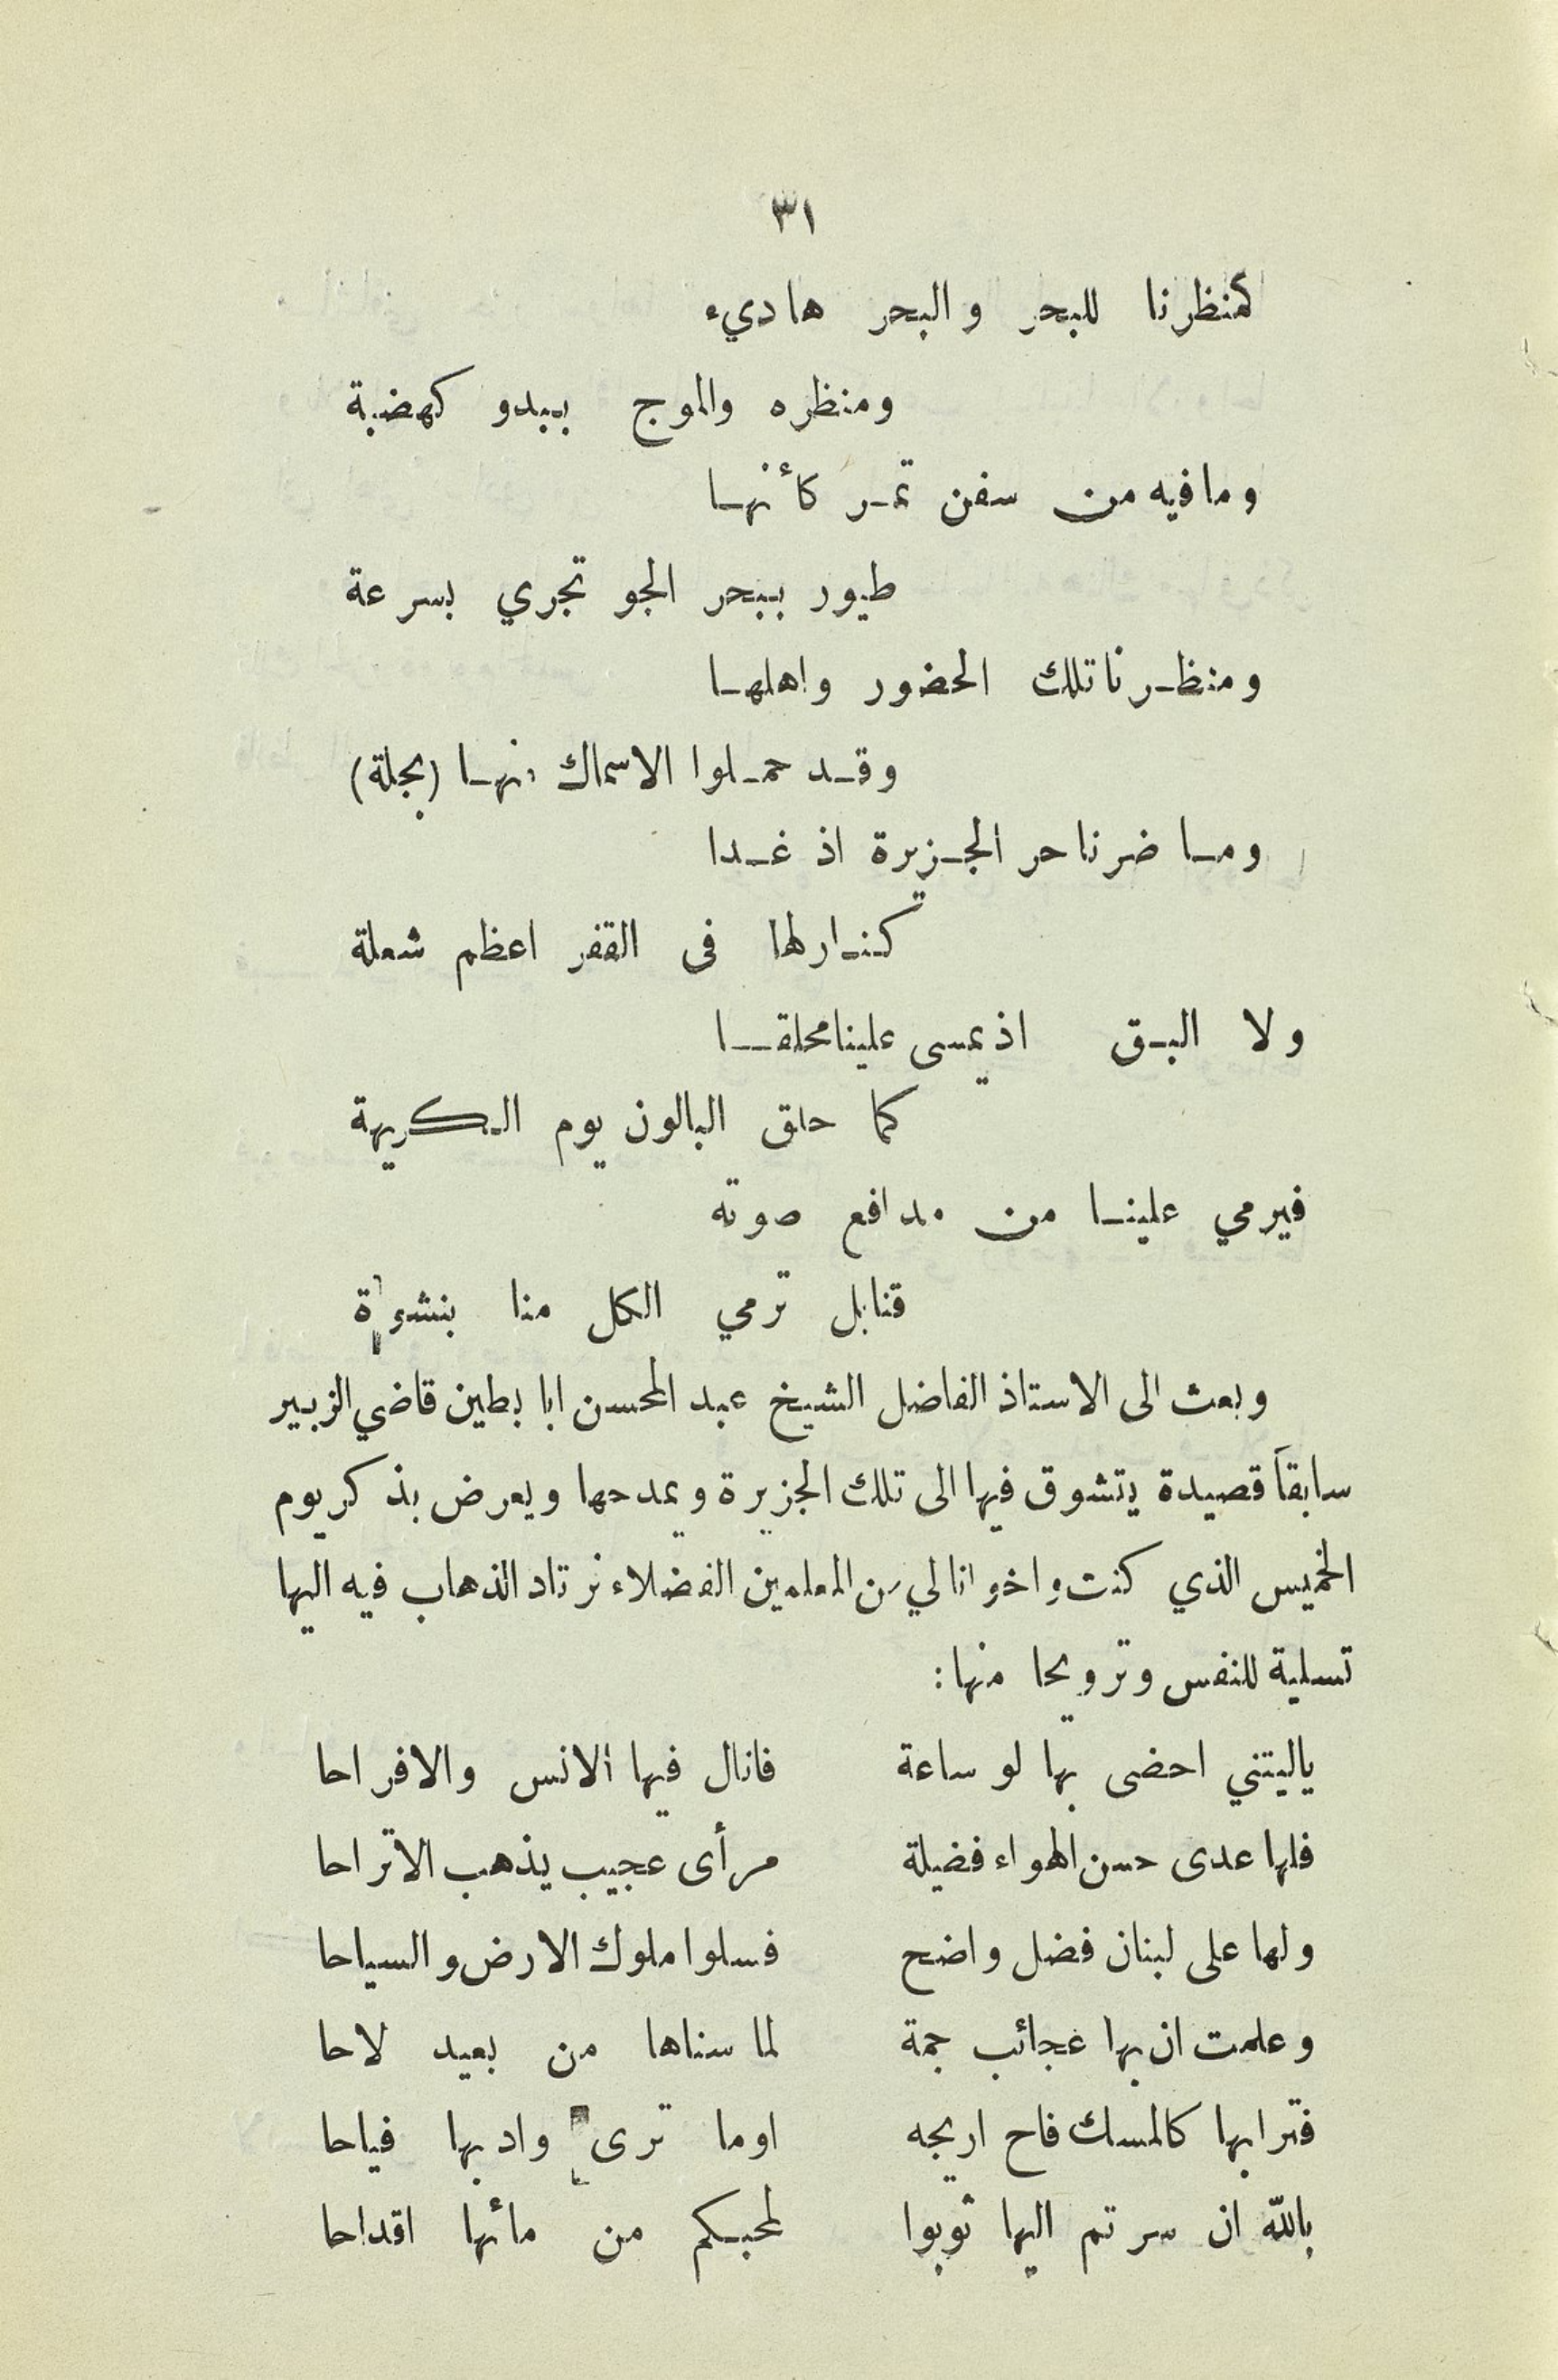 ٣١
كمنظرنا للبحر والبحر هاديء
ومنظره والموج يبدو كهضبة
وما فيه من سفن تمر كأنها
طيور ببحر الجو تجري بسرعة
ومنظرنا تلك الحضور واهلها
وقد حملوا الاسماك منها (بجلة)
وما ضرنا حر الجزيرة اذ غدا
كنار لها فى القفر اعظم شعلة
ولا البق اذ يمسى علينا محلقا
كما حلق البالون يوم الكريهة
فيرمي علينا من مدافع صوته
قنابل ترمي الكل منا بنشوة
وبعث الى الاستاذ الفاضل الشيخ عبد المحسن ابا بطين قاضي الزبير
سابقاً قصيدة يتشوق فيها الى تلك الجزيرة ويمدحها ويعرض بذكر يوم
الخميس الذي كنت واخوانا لي من المعلمين الفضلاء نرتاد الذهاب فيه اليها
تسلية للنفس وترويحا منها :
ياليتني احضى بها لو ساعة فانال فيها الانس والافراحا
فلها عدى حسن الهواء فضيلة مرأى عجيب يذهب الاتراحا
ولها على لبنان فضل واضح فسلوا ملوك الارض والسياحا
وعلمت ان بها عجائب جمة لما سناها من بعيد لاحا
فترابها كالمسك فاح اريجه اوما ترى واديها فياحا
بالله ان سرتم اليها ثوبوا لمحبكم من مائها اقداحا